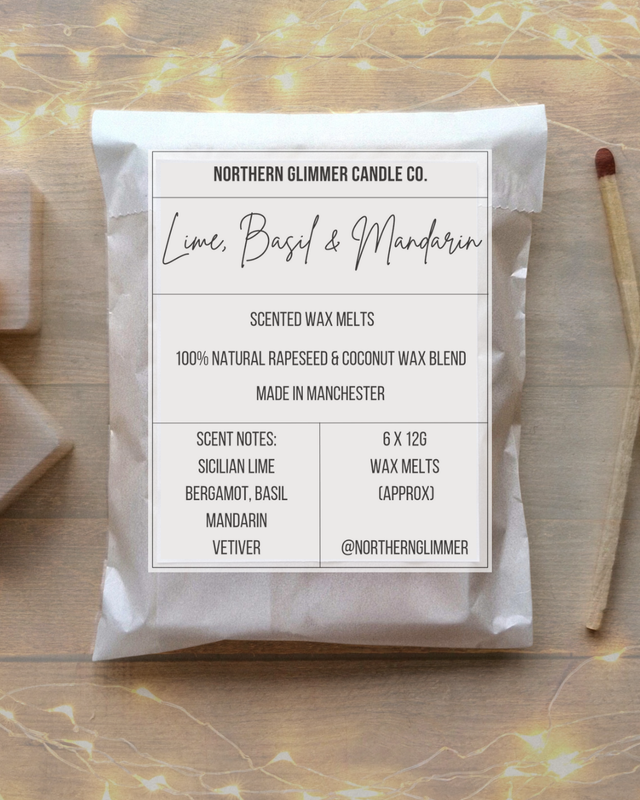 NORTHERN GLIMMER CANDLE CO.
Lime, Basil & Mandarin
SCENTED WAX MELTS
100% NATURAL RAPESEED & COCONUT WAX BLEND
MADE IN MANCHESTER
SCENT NOTES:
SICILIAN LIME
BERGAMOT, BASIL
MANDARIN
VETIVER
6 X 12G
WAX MELTS
(APPROX)
@NORTHERNGLIMMER